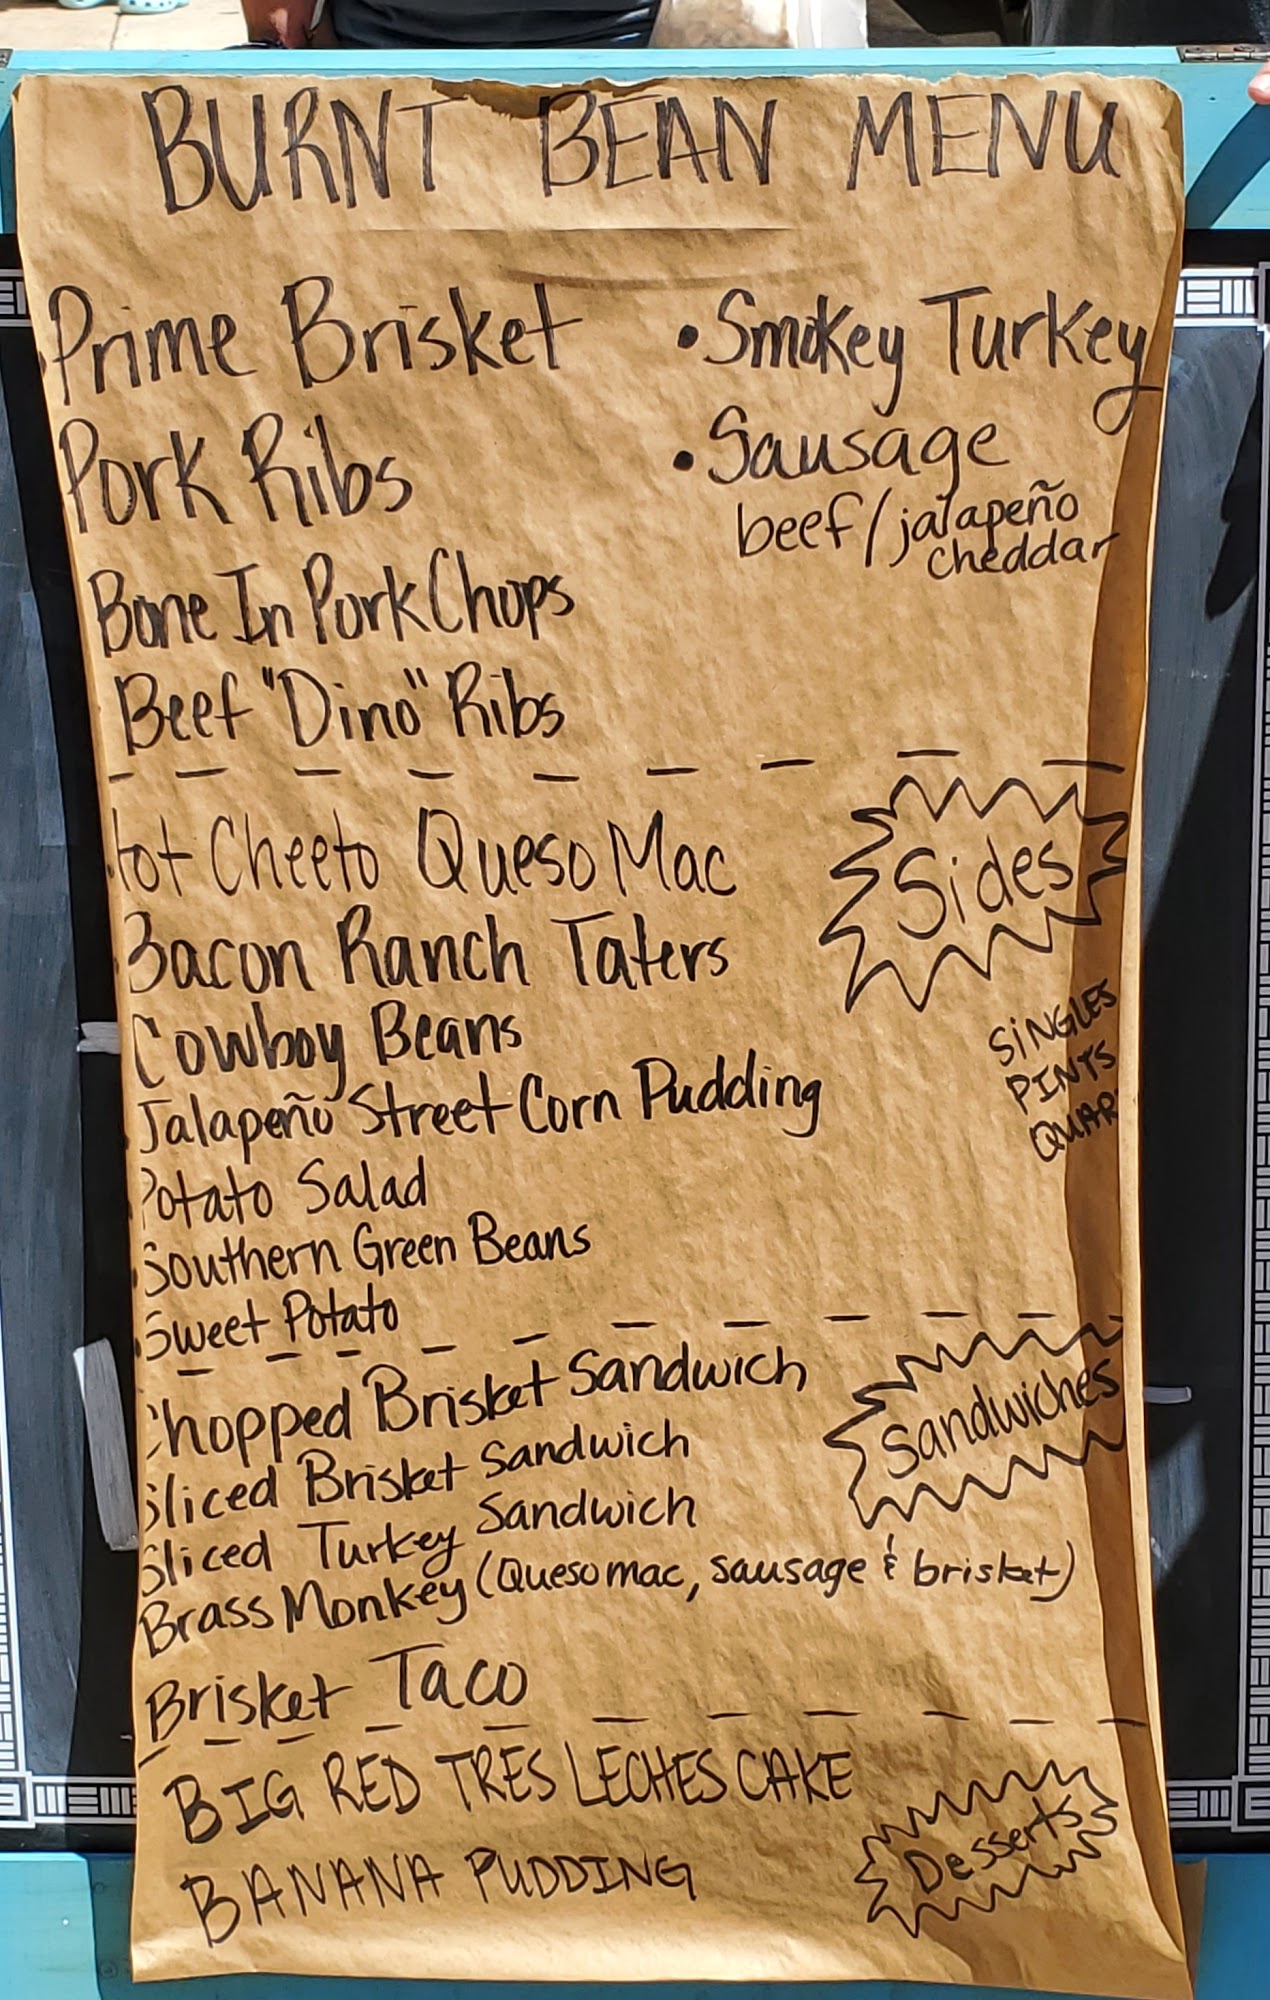 BURNT BEAN MENU
Prime Brisket
Pork Ribs
Bone In Pork Chops
Beef "Dino" Ribs
• Smokey Turkey
• Sausage
beef/jalapeño
cheddar
Hot Cheeto Queso Mac
Bacon Ranch Taters
Cowboy Beans
Jalapeño Street Corn Pudding
Potato Salad
Southern Green Beans
Sweet Potato
Sides
SINGLES
PINTS
QUAR
Chopped Brisket Sandwich
Sliced Brisket Sandwich
Sliced Turkey Sandwich
Brass Monkey (Queso mac, sausage & brisket)
Brisket Taco
Sandwiches
BIG RED TRES LECHES CAKE
BANANA PUDDING
Desserts